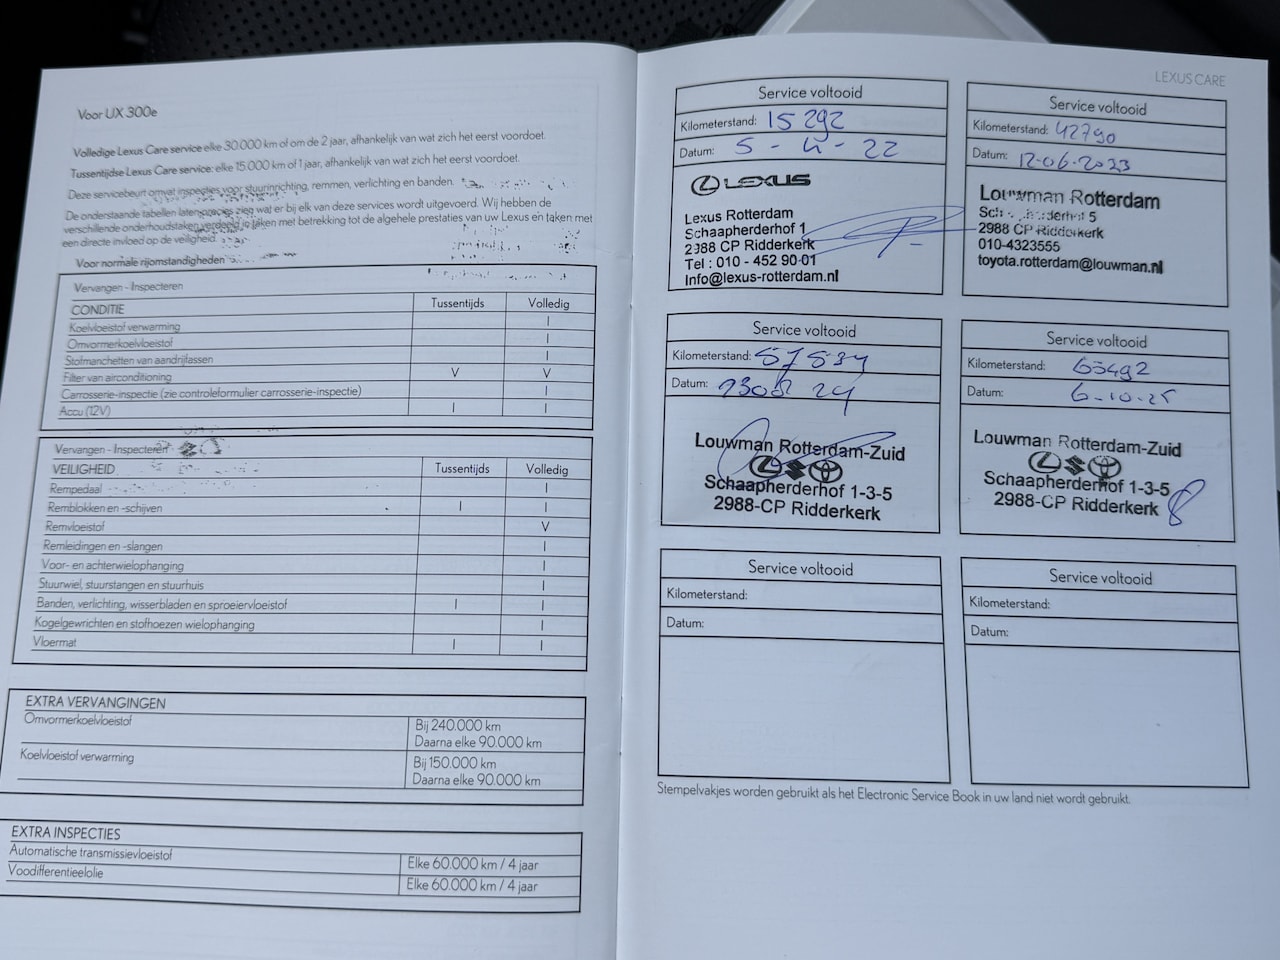 Voor UX 300e
Volledige Lexus Care service elke 30.000 km of om de 2 jaar, afhankelijk van wat zich het eerst voordoet.
Tussentijdse Lexus Care service: elke 15.000 km of 1 jaar, afhankelijk van wat zich het eerst voordoet.
Deze servicebeurt omvat inspecties voor stuurinrichting, remmen, verlichting en banden.
De onderstaande tabellen laten precies zien wat er bij elk van deze services wordt uitgevoerd. Wij hebben de
verschillende onderhoudstaken verdeeld in taken met betrekking tot de algehele prestaties van uw Lexus en taken met
een directe invloed op de veiligheid.
Voor normale rijomstandigheden
Vervangen - Inspecteren
CONDITIE Tussentijds Volledig
Koelvloeistof verwarming I
Omvormerkoelvloeistof I
Stofmanchetten van aandrijfassen I
Filter van airconditioning V V
Carrosserie-inspectie (zie controleformulier carrosserie-inspectie) I
Accu (12V) I I
Vervangen - Inspecteren
VEILIGHEID Tussentijds Volledig
Rempedaal I
Remblokken en -schijven I I
Remvloeistof V
Remleidingen en -slangen I
Voor- en achterwielophanging I
Stuurwiel, stuurstangen en stuurhuis I
Banden, verlichting, wisserbladen en sproeiervloeistof I I
Kogelgewrichten en stofhoezen wielophanging I
Vloermat I I
EXTRA VERVANGINGEN
Omvormerkoelvloeistof Bij 240.000 km
Daarna elke 90.000 km
Koelvloeistof verwarming Bij 150.000 km
Daarna elke 90.000 km
EXTRA INSPECTIES
Automatische transmissievloeistof Elke 60.000 km / 4 jaar
Voodifferentieelolie Elke 60.000 km / 4 jaar
LEXUS CARE
Service voltooid
Kilometerstand: 15292
Datum: 5-4-22
LEXUS
Lexus Rotterdam
Schaapherderhof 1
2988 CP Ridderkerk
Tel : 010 - 452 90 01
Info@lexus-rotterdam.nl
Service voltooid
Kilometerstand: 42790
Datum: 12-06-2023
Louwman Rotterdam
5
2988 CP Ridderkerk
010-4323555
toyota.rotterdam@louwman.nl
Service voltooid
Kilometerstand: 57834
Datum: 24
Louwman Rotterdam-Zuid
Schaapherderhof 1-3-5
2988-CP Ridderkerk
Service voltooid
Kilometerstand: 65492
Datum: 6-10-25
Louwman Rotterdam-Zuid
Schaapherderhof 1-3-5
2988-CP Ridderkerk
Service voltooid
Kilometerstand:
Datum:
Service voltooid
Kilometerstand:
Datum:
Stempelvakjes worden gebruikt als het Electronic Service Book in uw land niet wordt gebruikt.